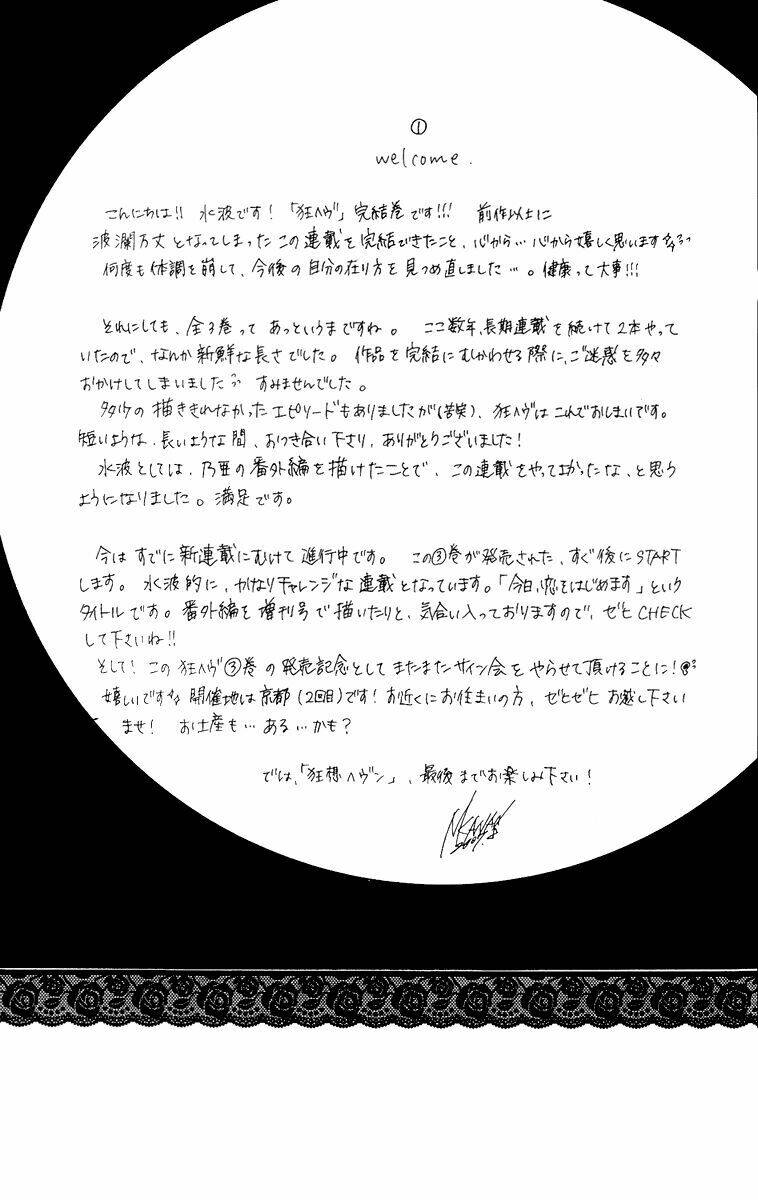 ①
welcome.
こんにちは!! 水波です! 「狂ヘヴ」完結巻です!!! 前作以上に
波瀾万丈となってしまったこの連載を完結できたこと、心から…心から嬉しく思います
何度も体調を崩して、今後の自分の在り方を見つめ直しました…。健康って大事!!!
それにしても、全3巻ってあっというまですね。 ここ数年、長期連載を続けて2本やって
いたので、なんか新鮮な長さでした。 作品を完結にむかわせる際に、ご迷惑を多々
おかけしてしまいました すみませんでした。
多々の描ききれなかったエピソードもありましたが(苦笑)、狂ヘヴはこれでおしまいです。
短いような、長いような間、おつき合い下さり、ありがとうございました!
水波としては、乃亜の番外編を描けたことで、この連載をやってよかったな、と思う
ようになりました。満足です。
今はすでに新連載にむけて進行中です。 この③巻が発売された、すぐ後にSTART
します。水波的に、かなりチャレンジな連載となっています。「今日、恋をはじめます」という
タイトルです。番外編を増刊号で描いたりと、気合い入っておりますので、ぜひCHECK
して下さいね!!
そして!この狂ヘヴ③巻の発売記念としてまたまたサイン会をやらせて頂けることに!
嬉しいです 開催地は京都(2回目)です!お近くにお住まいの方、ぜひぜひお越し下さい
ませ! お土産も…ある…かも?
では、「狂想ヘヴン」、最後までお楽しみ下さい!